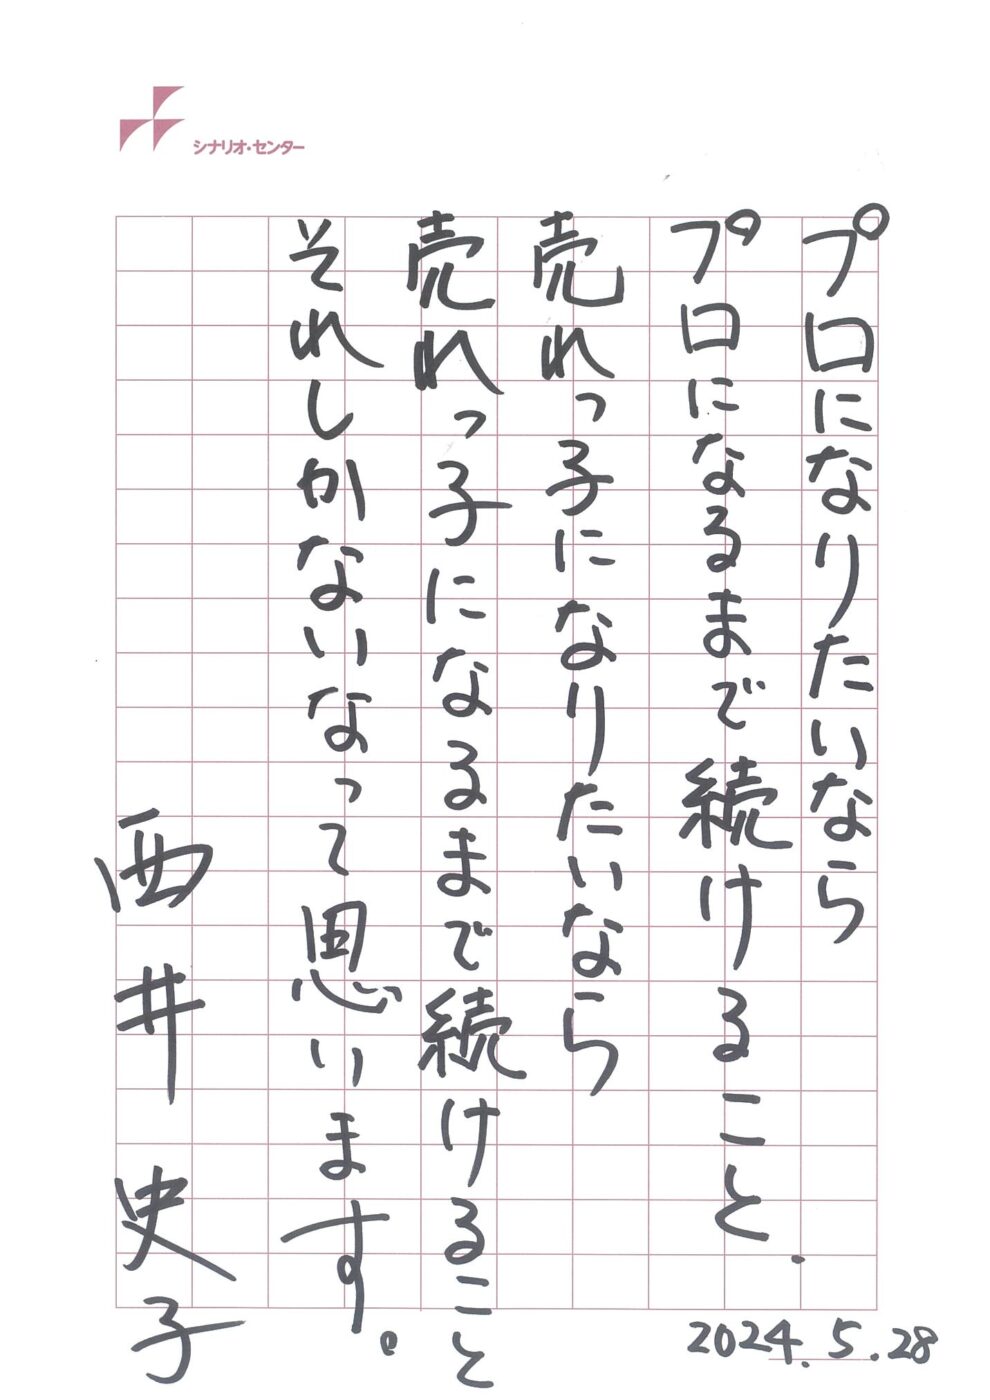 シナリオ・センター
プロになりたいなら
プロになるまで続けること.
売れっ子になりたいなら
売れっ子になるまで続けること
それしかないなって思います。
西井史子
2024.5.28